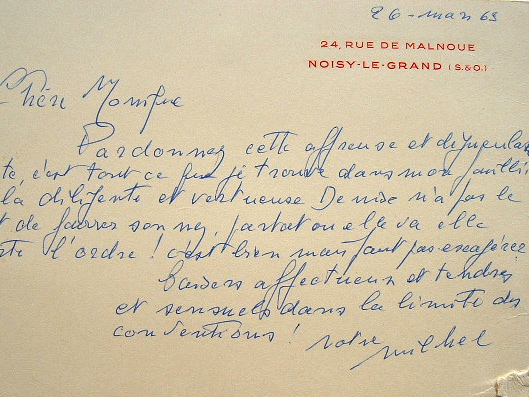 26 - mars 63
24, RUE DE MALNOUE
NOISY-LE-GRAND (S.&O.)
Chère Monique
Pardonnez cette affreuse et dégueulas
te, c'est tout ce que je trouve dans mon
la diligente et vertueuse Denise n'a pas le
t de fourrer son nez, partout où elle va elle
l'ordre ! c'est bien mais faut pas exagérer
baisers affectueux et tendres
et sensuels dans la limite des
conventions !
votre
Michel